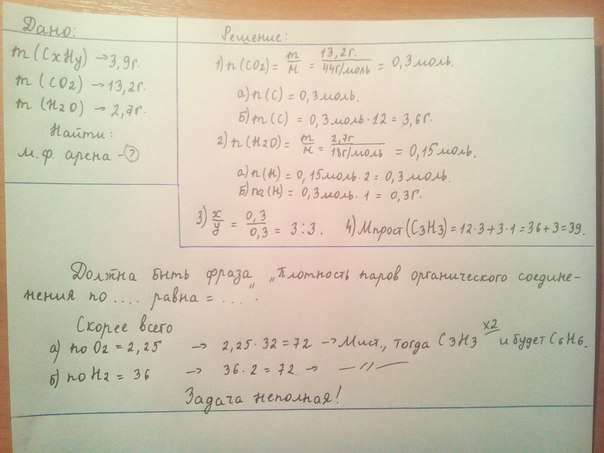 Дано:
m(CxHy) → 3,9г.
m(CO2) → 13,2г.
m(H2O) → 2,7г.
Найти:
м.ф. арена - ?
Решение:
1) n(CO2) = m/M = 13,2г./44г/моль = 0,3моль.
а) n(C) = 0,3моль.
б) m(C) = 0,3моль·12 = 3,6г.
2) n(H2O) = m/M = 2,7г/18г/моль = 0,15моль.
а) n(H) = 0,15моль·2 = 0,3моль.
б) m(H) = 0,3моль·1 = 0,3г.
3) x/y = 0,3/0,3 = 3:3. 4) Mпрост(C3H3) = 12·3+3·1 = 36+3 = 39.
Должна быть фраза „Плотность паров органического соедине-
нения по .... равна = ...“.
Скорее всего
а) по O2 = 2,25 → 2,25·32 = 72 → Mист., тогда C3H3 x2 и будет C6H6.
б) по H2 = 36 → 36·2 = 72 → —//—
Задача неполная!